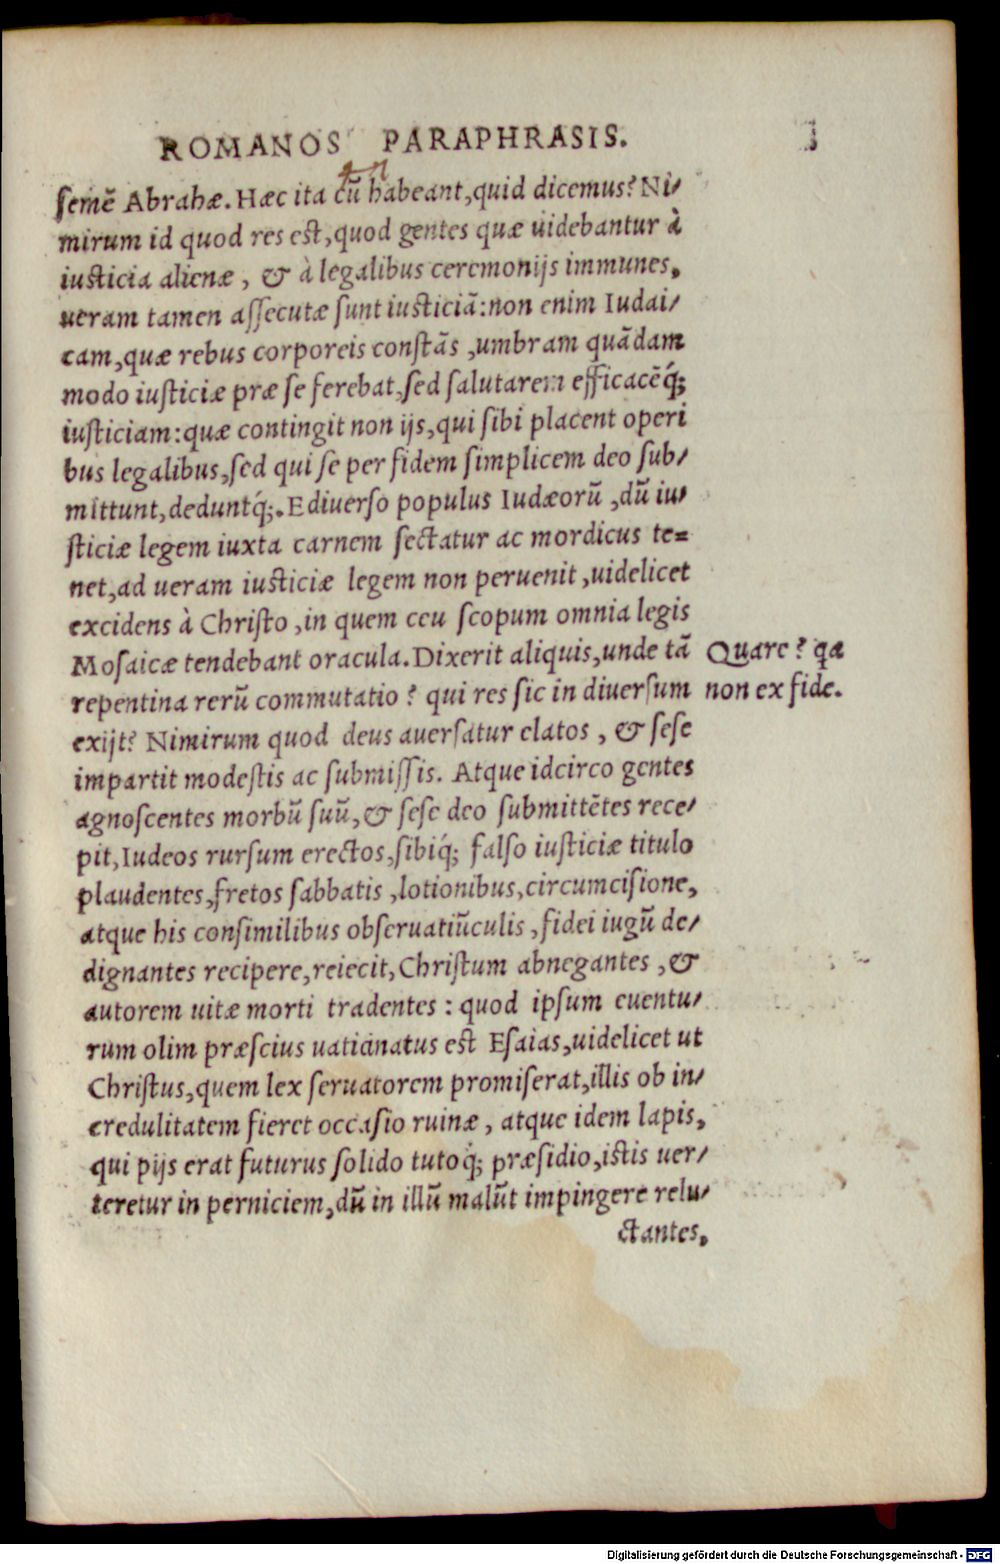 ROMANOS PARAPHRASIS.
semẽ Abrahæ. Hæc ita cũ habeant, quid dicemus? Ni/
mirum id quod res est, quod gentes quæ uidebantur à
iusticia alienæ, & à legalibus ceremonijs immunes,
ueram tamen assecutæ sunt iusticiã: non enim Iudai/
cam, quæ rebus corporeis constãs, umbram quãdam
modo iusticiæ præ se ferebat, sed salutarem efficacẽq́;
iusticiam: quæ contingit non ijs, qui sibi placent operi
bus legalibus, sed qui se per fidem simplicem deo sub/
mittunt, deduntq́;. E diuerso populus Iudæorũ, dũ iu/
sticiæ legem iuxta carnem sectatur ac mordicus te=
net, ad ueram iusticiæ legem non peruenit, uidelicet
excidens à Christo, in quem ceu scopum omnia legis
Mosaicæ tendebant oracula. Dixerit aliquis, unde tã
repentina rerũ commutatio? qui res sic in diuersum
exijt? Nimirum quod deus auersatur elatos, & sese
impartit modestis ac submissis. Atque idcirco gentes
agnoscentes morbũ suũ, & sese deo submittẽtes rece/
pit, Iudeos rursum erectos, sibiq́; falso iusticiæ titulo
plaudentes, fretos sabbatis, lotionibus, circumcisione,
atque his consimilibus obseruatiũculis, fidei iugũ de/
dignantes recipere, reiecit, Christum abnegantes, &
autorem uitæ morti tradentes: quod ipsum euentu/
rum olim præscius uaticinatus est Esaias, uidelicet ut
Christus, quem lex seruatorem promiserat, illis ob in/
credulitatem fieret occasio ruinæ, atque idem lapis,
qui pijs erat futurus solido tutoq́; præsidio, istis uer/
teretur in perniciem, dũ in illũ malũt impingere relu/
ctantes,
Quare? qa
non ex fide.
Digitalisierung gefördert durch die Deutsche Forschungsgemeinschaft - DFG